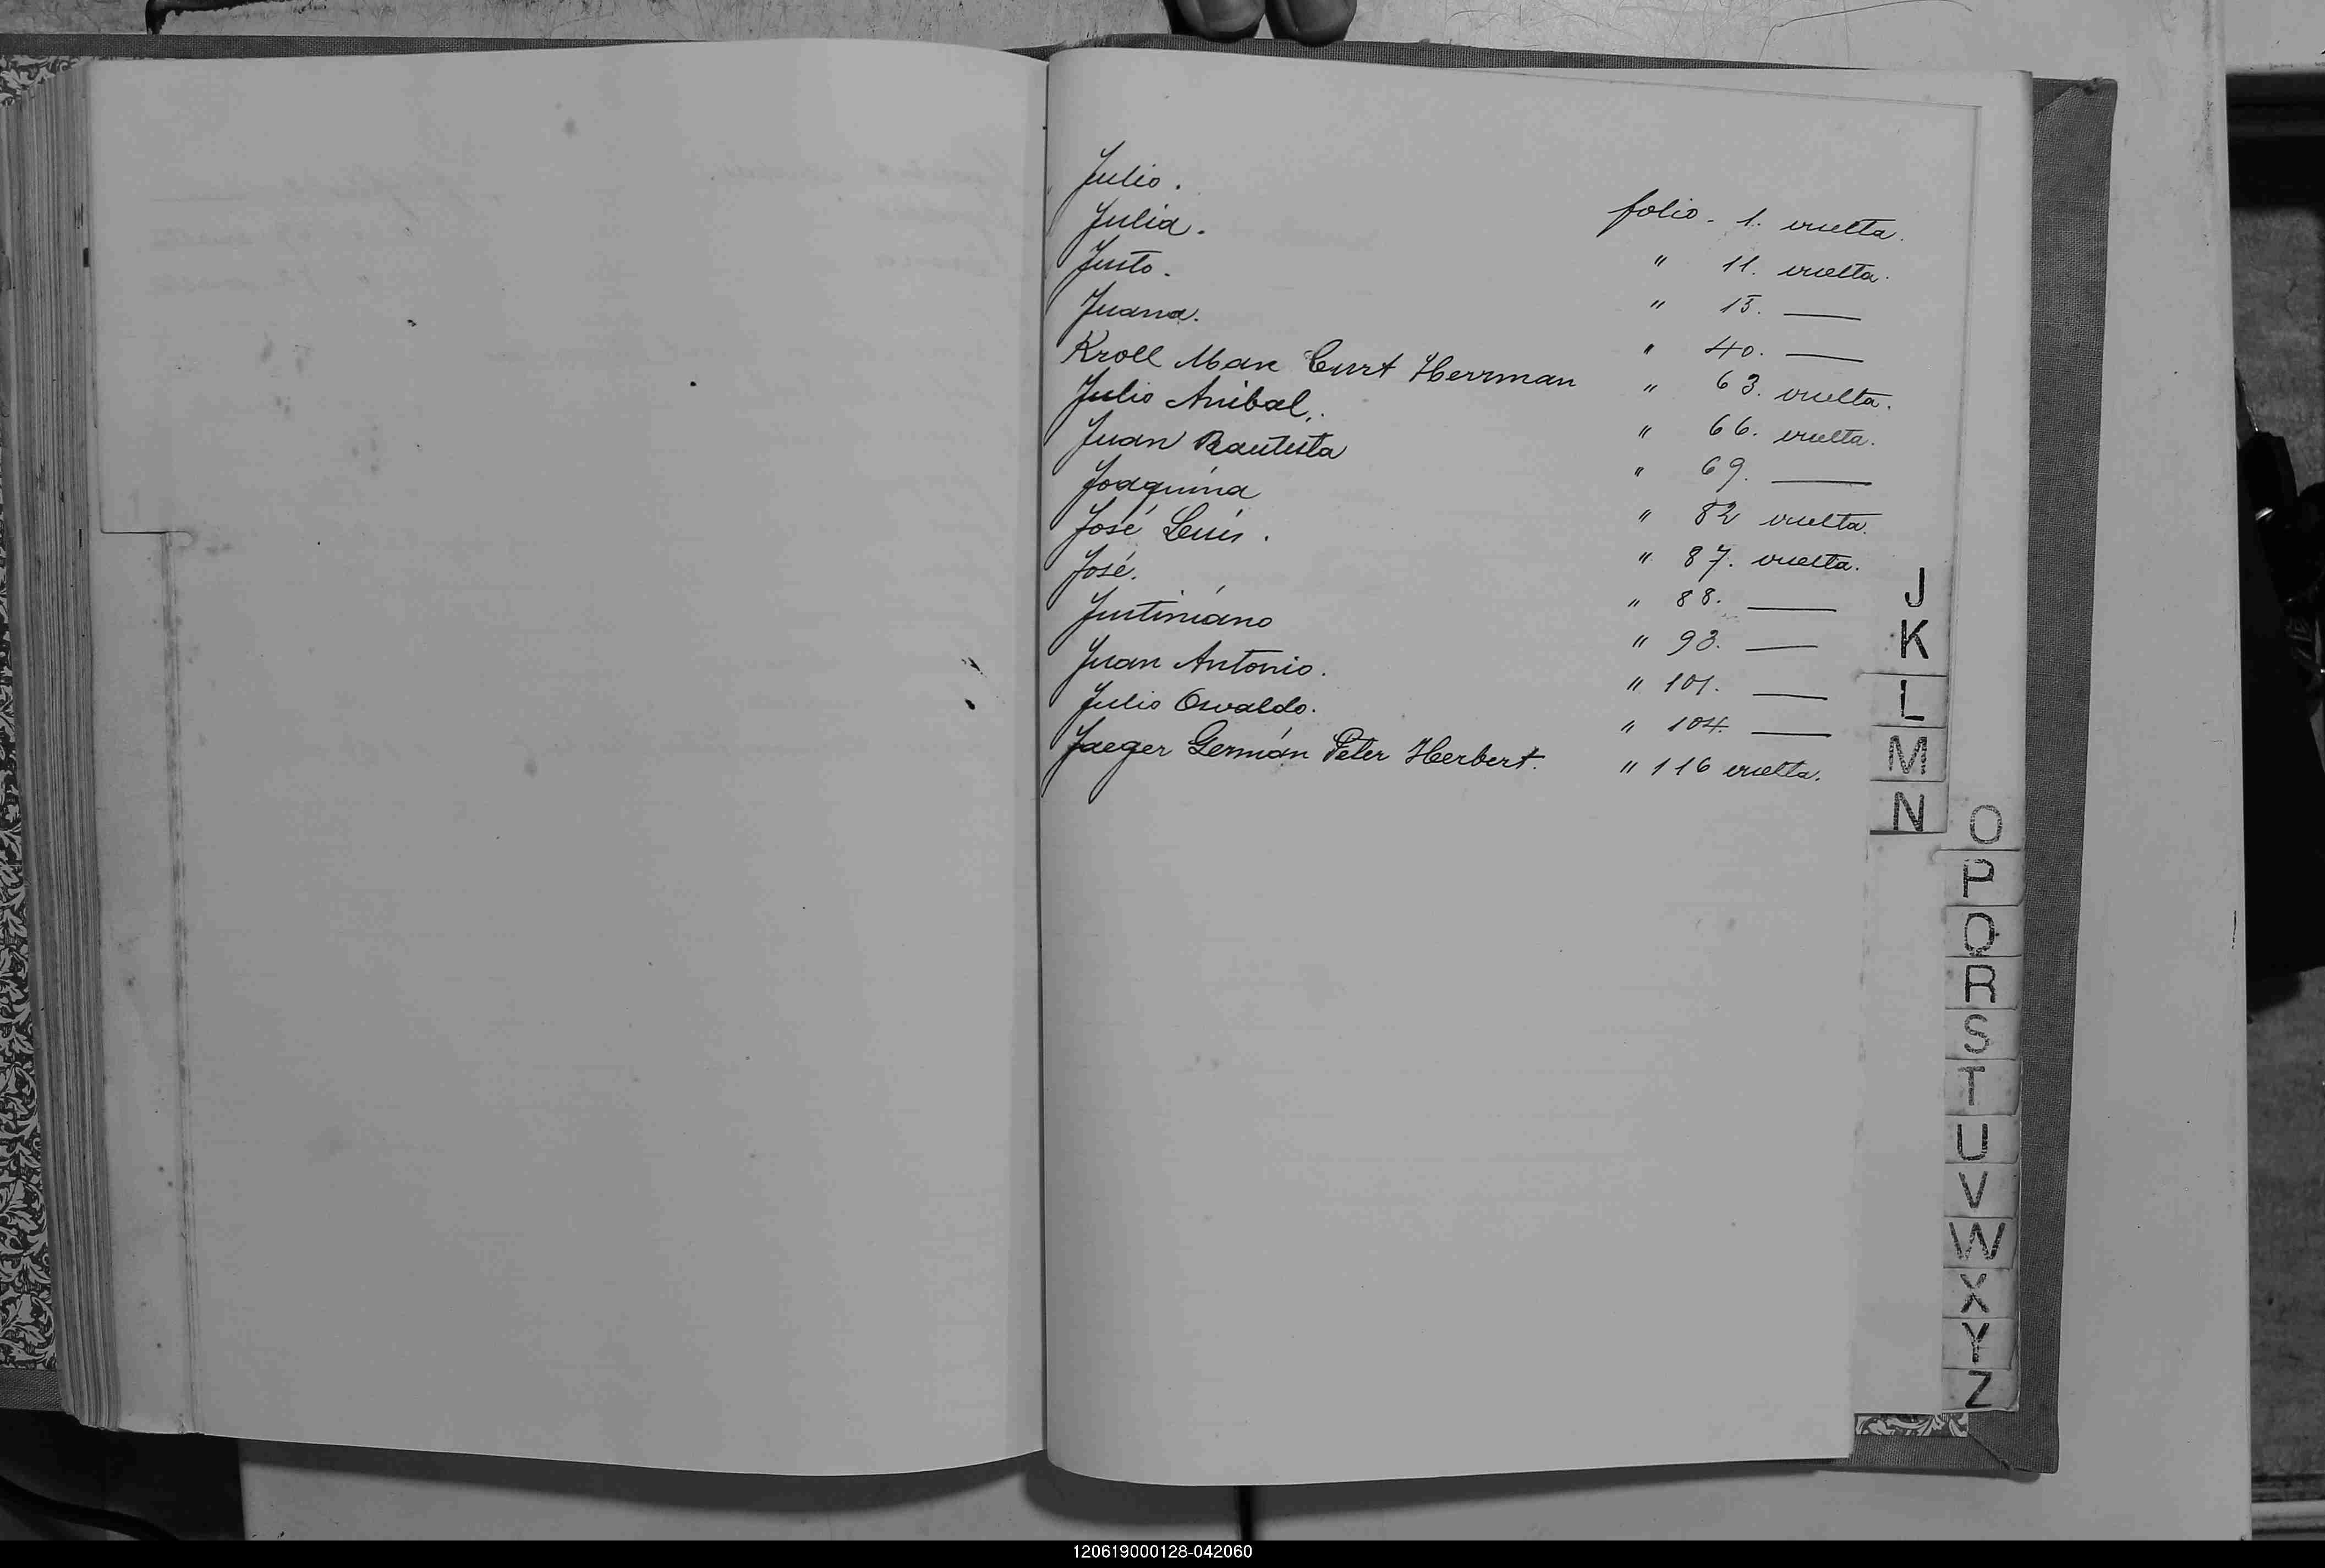 Julio. folio - 1. vuelta.
Julia. " 11. vuelta.
Justo. " 15. —
Juana. " 40. —
Kroll Max Curt Herrman " 63. vuelta.
Julio Anibal. " 66. vuelta.
Juan Bautista " 69. —
Joaquina " 82 vuelta.
José Luis. " 87. vuelta.
José. " 88. —
Justiniano " 93. —
Juan Antonio. " 101. —
Julio Osvaldo. " 104. —
Jaeger Germán Peter Herbert. " 116 vuelta.
J
K
L
M
N
O
P
Q
R
S
T
U
V
W
X
Y
Z
120619000128-042060